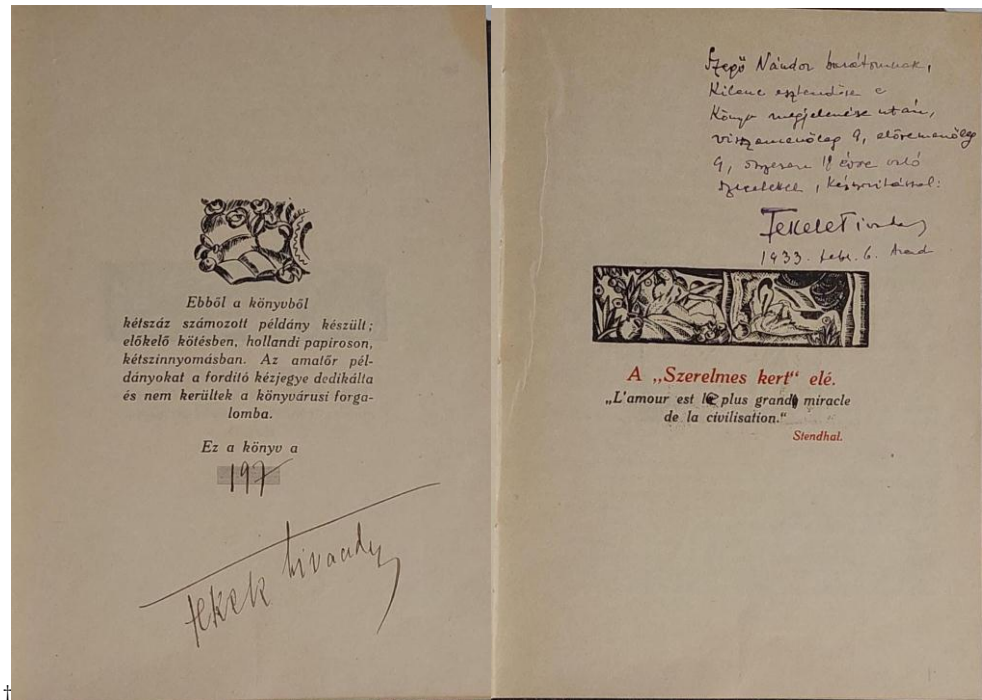 Ebből a könyvből
kétszáz számozott példány készült;
előkelő kötésben, hollandi papiroson,
kétszinnyomásban. Az amatőr pél-
dányokat a forditó kézjegye dedikálta
és nem kerültek a könyvárusi forga-
lomba.
Ez a könyv a
197
Fekete Tivadar
Szegő Nándor barátomnak,
Kilenc esztendővel e
könyv megjelenése után,
visszamenőleg 9, előremenőleg
9, összesen 18 évre való
szeretettel,
Fekete Tivadar
1933. febr. 6. Arad
A „Szerelmes kert“ elé.
„L'amour est le plus grand miracle
de la civilisation.“
Stendhal.
†